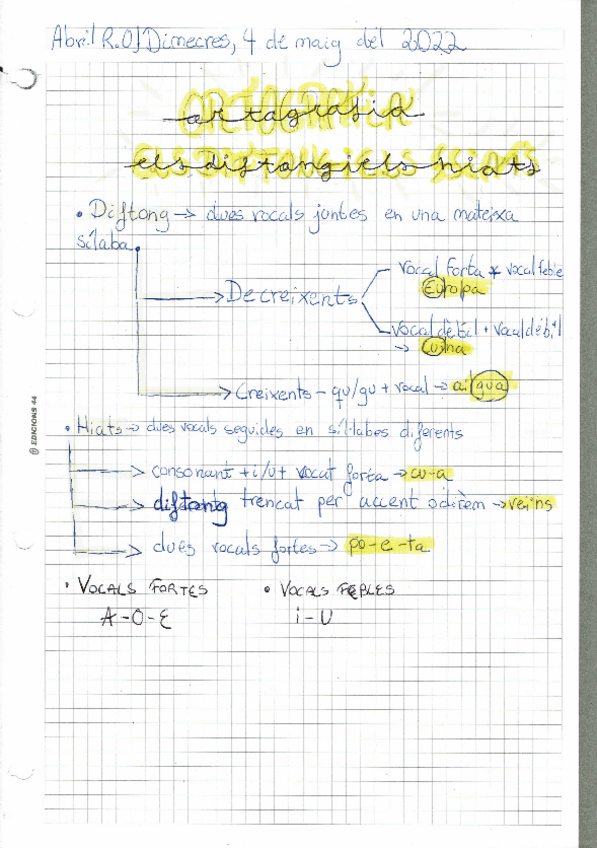 Abril R.O/Dimecres, 4 de maig del 2022
ortografia
els diftong i els hiats
• Diftong → dues vocals juntes en una mateixa
síl·laba.
→ Decreixents
vocal forta + vocal feble
Europa
vocal dèbil + vocal dèbil
→ cuina
→ Creixents – qu/gu + vocal → aigua
• Hiats → dues vocals seguides en síl·labes diferents
→ consonant + i/u + vocal forta → cu-a
→ diftong trencat per accent o dièrem → veïns
→ dues vocals fortes → po-e-ta
• VOCALS FORTES
A-O-E
• VOCALS FEBLES
i-U
@ EDICIONS 44